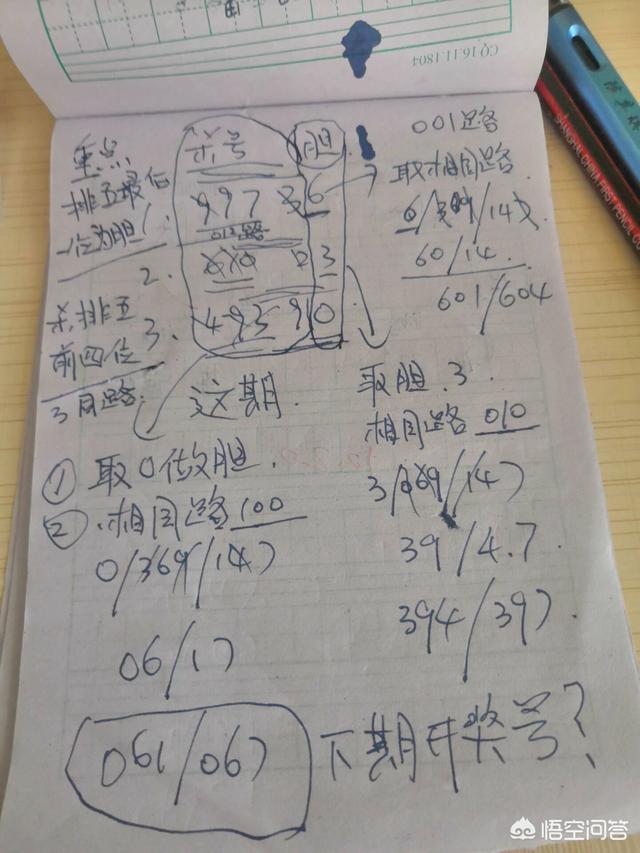 CQ16.11.1804
SHANGHAI CHINA FIRST PENCIL CO
重点
排五最后
一位为胆
杀排五
前四位
3同路
杀号 胆
997 36
012路
2.
3
3.
493 90
001路
取相同路
6/369/147
60/14
601/604
这期
① 取0做胆
② 相同路100
0/369/147
06/17
061/067
取胆.3.
相同路010
3/069/147
39/4.7.
394/397
下期开奖号?
悟空问答